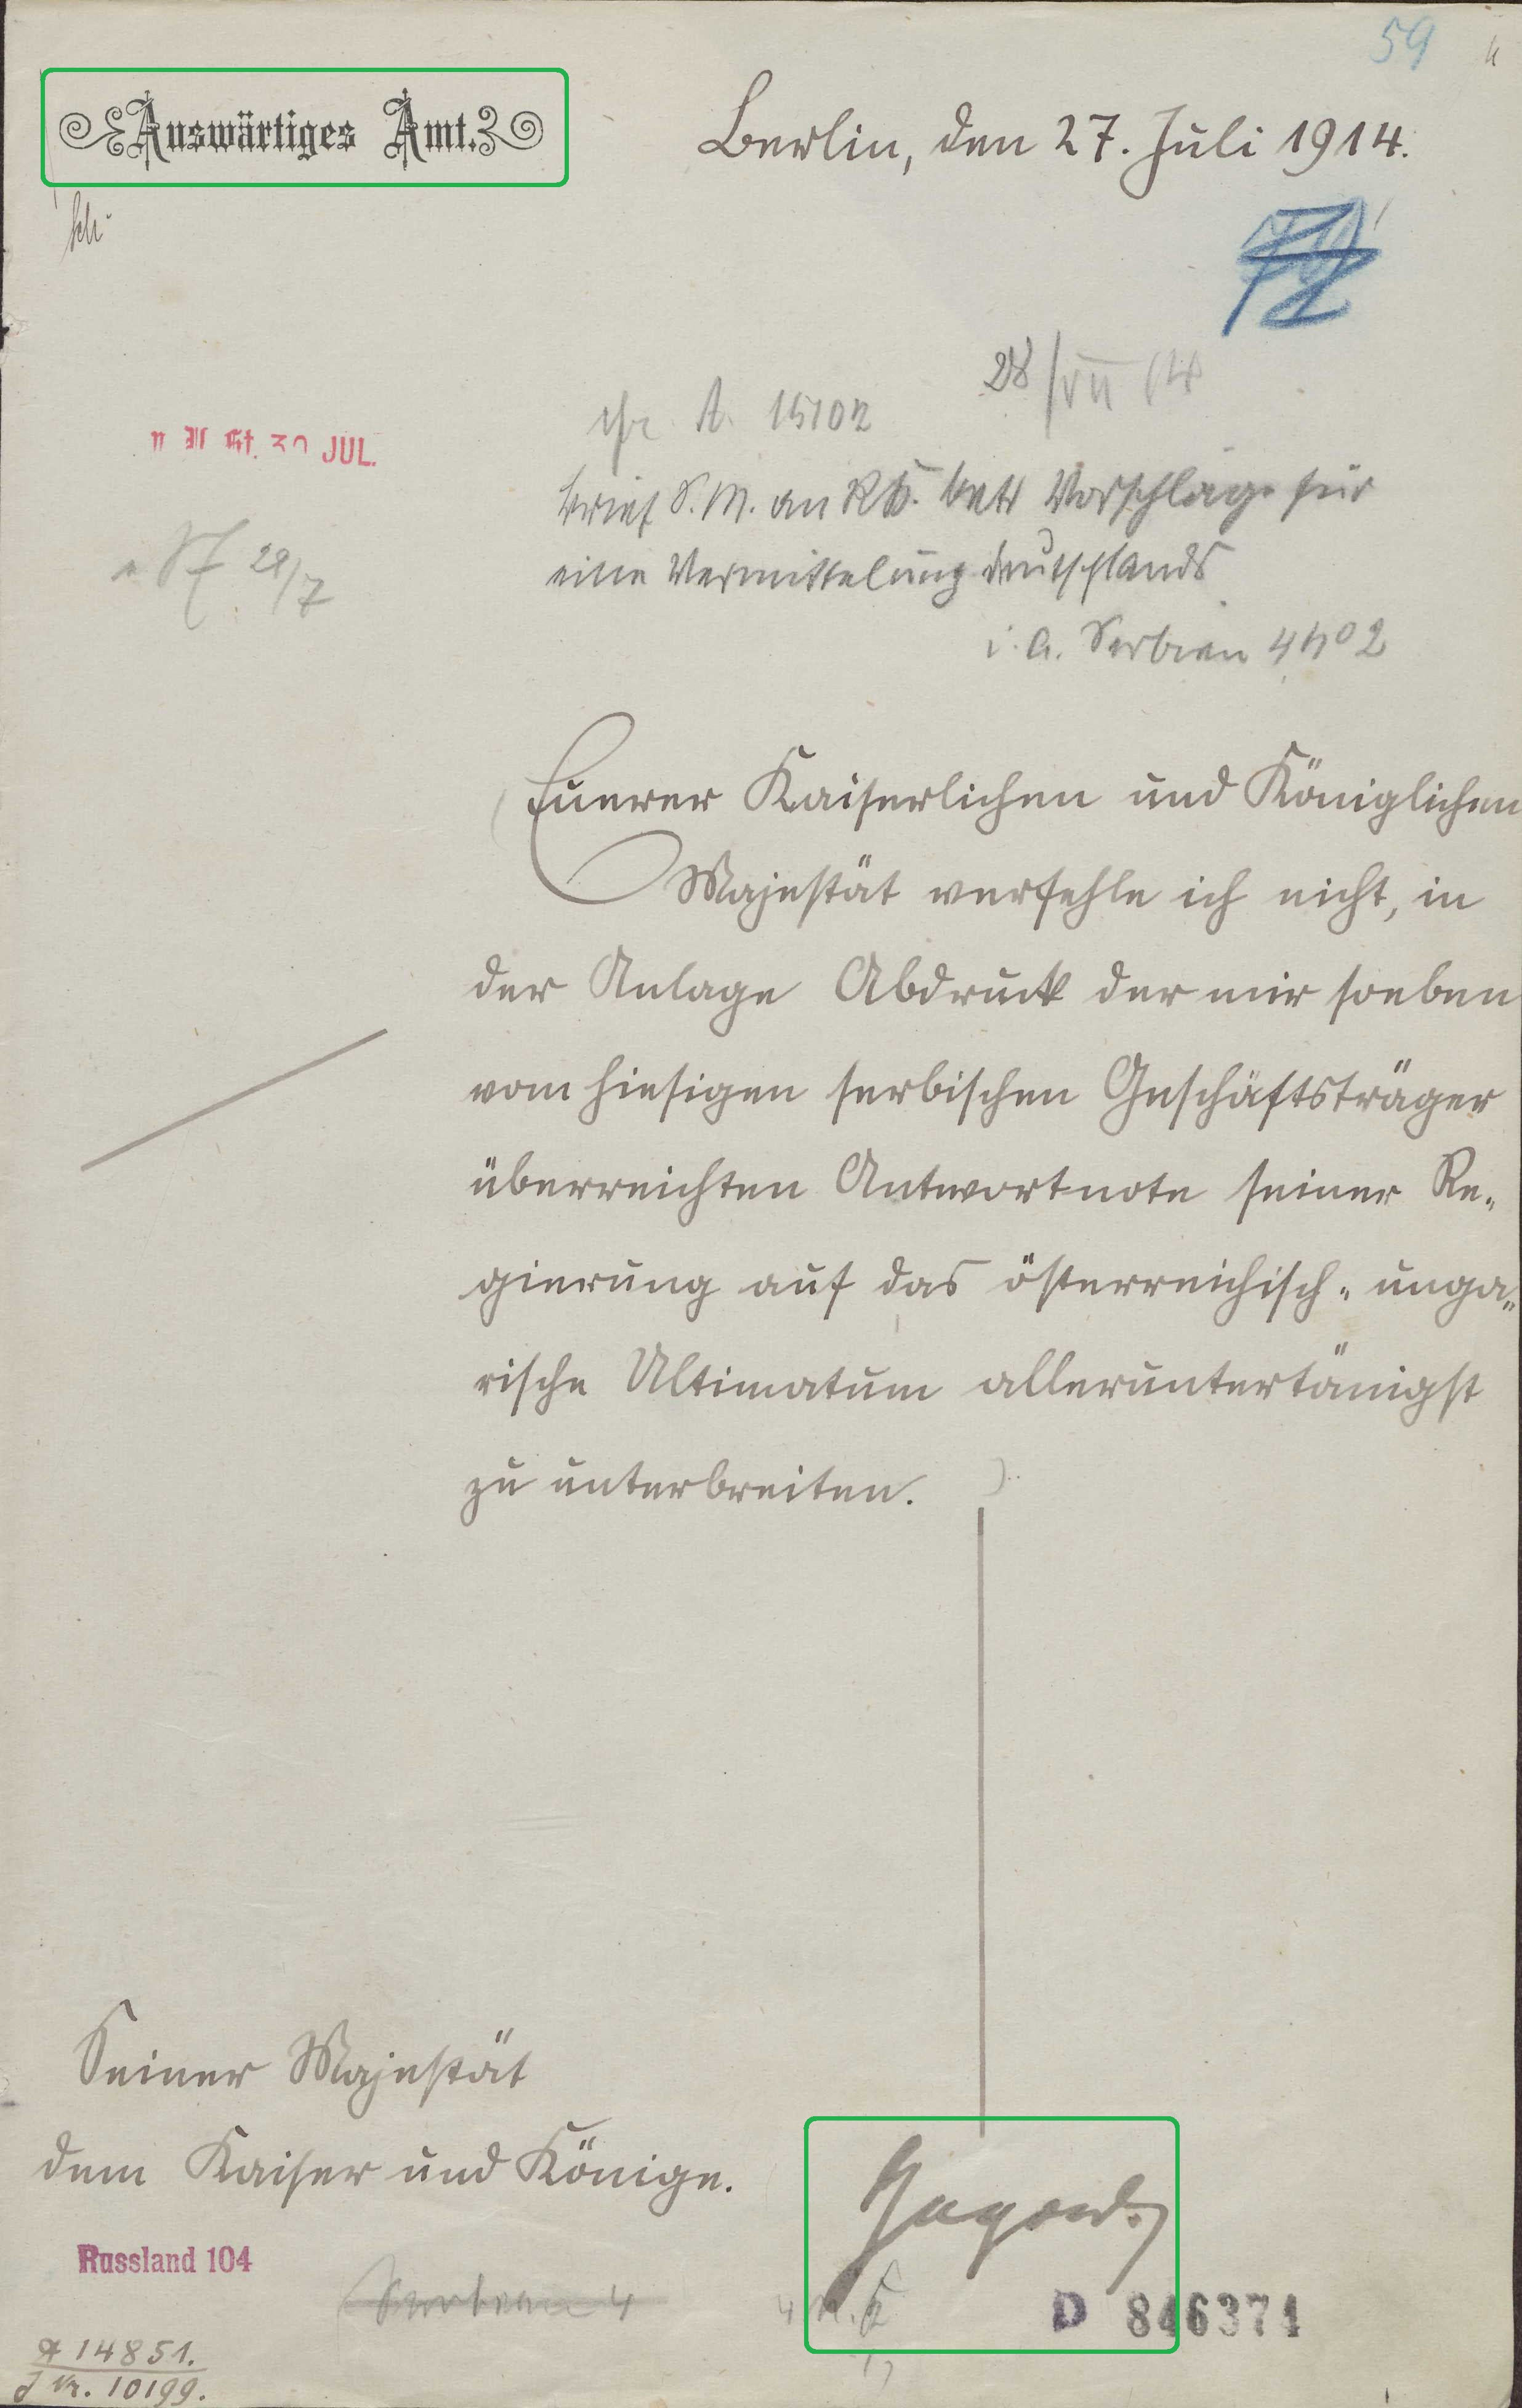 59
Auswärtiges Amt.
Berlin, den 27. Juli 1914.
28/VII 14
A. 15102
JUL.
Brief S.M. an RK. betr Vorschläge für
29/7
eine Vermittelung Deutschlands
i. a. Serbien 4 No 2
Euerer Kaiserlichen und Königlichen
Majestät verfehle ich nicht, in
der Anlage Abdruck der mir soeben
vom hiesigen serbischen Geschäftsträger
überreichten Antwortnote seiner Re-
gierung auf das österreichisch-unga-
rische Ultimatum alleruntertänigst
zu unterbreiten.
Seiner Majestät
dem Kaiser und Könige.
Jagow.
Russland 104
Serbien 4
D 846371
A 14851.
J Nr. 10199.